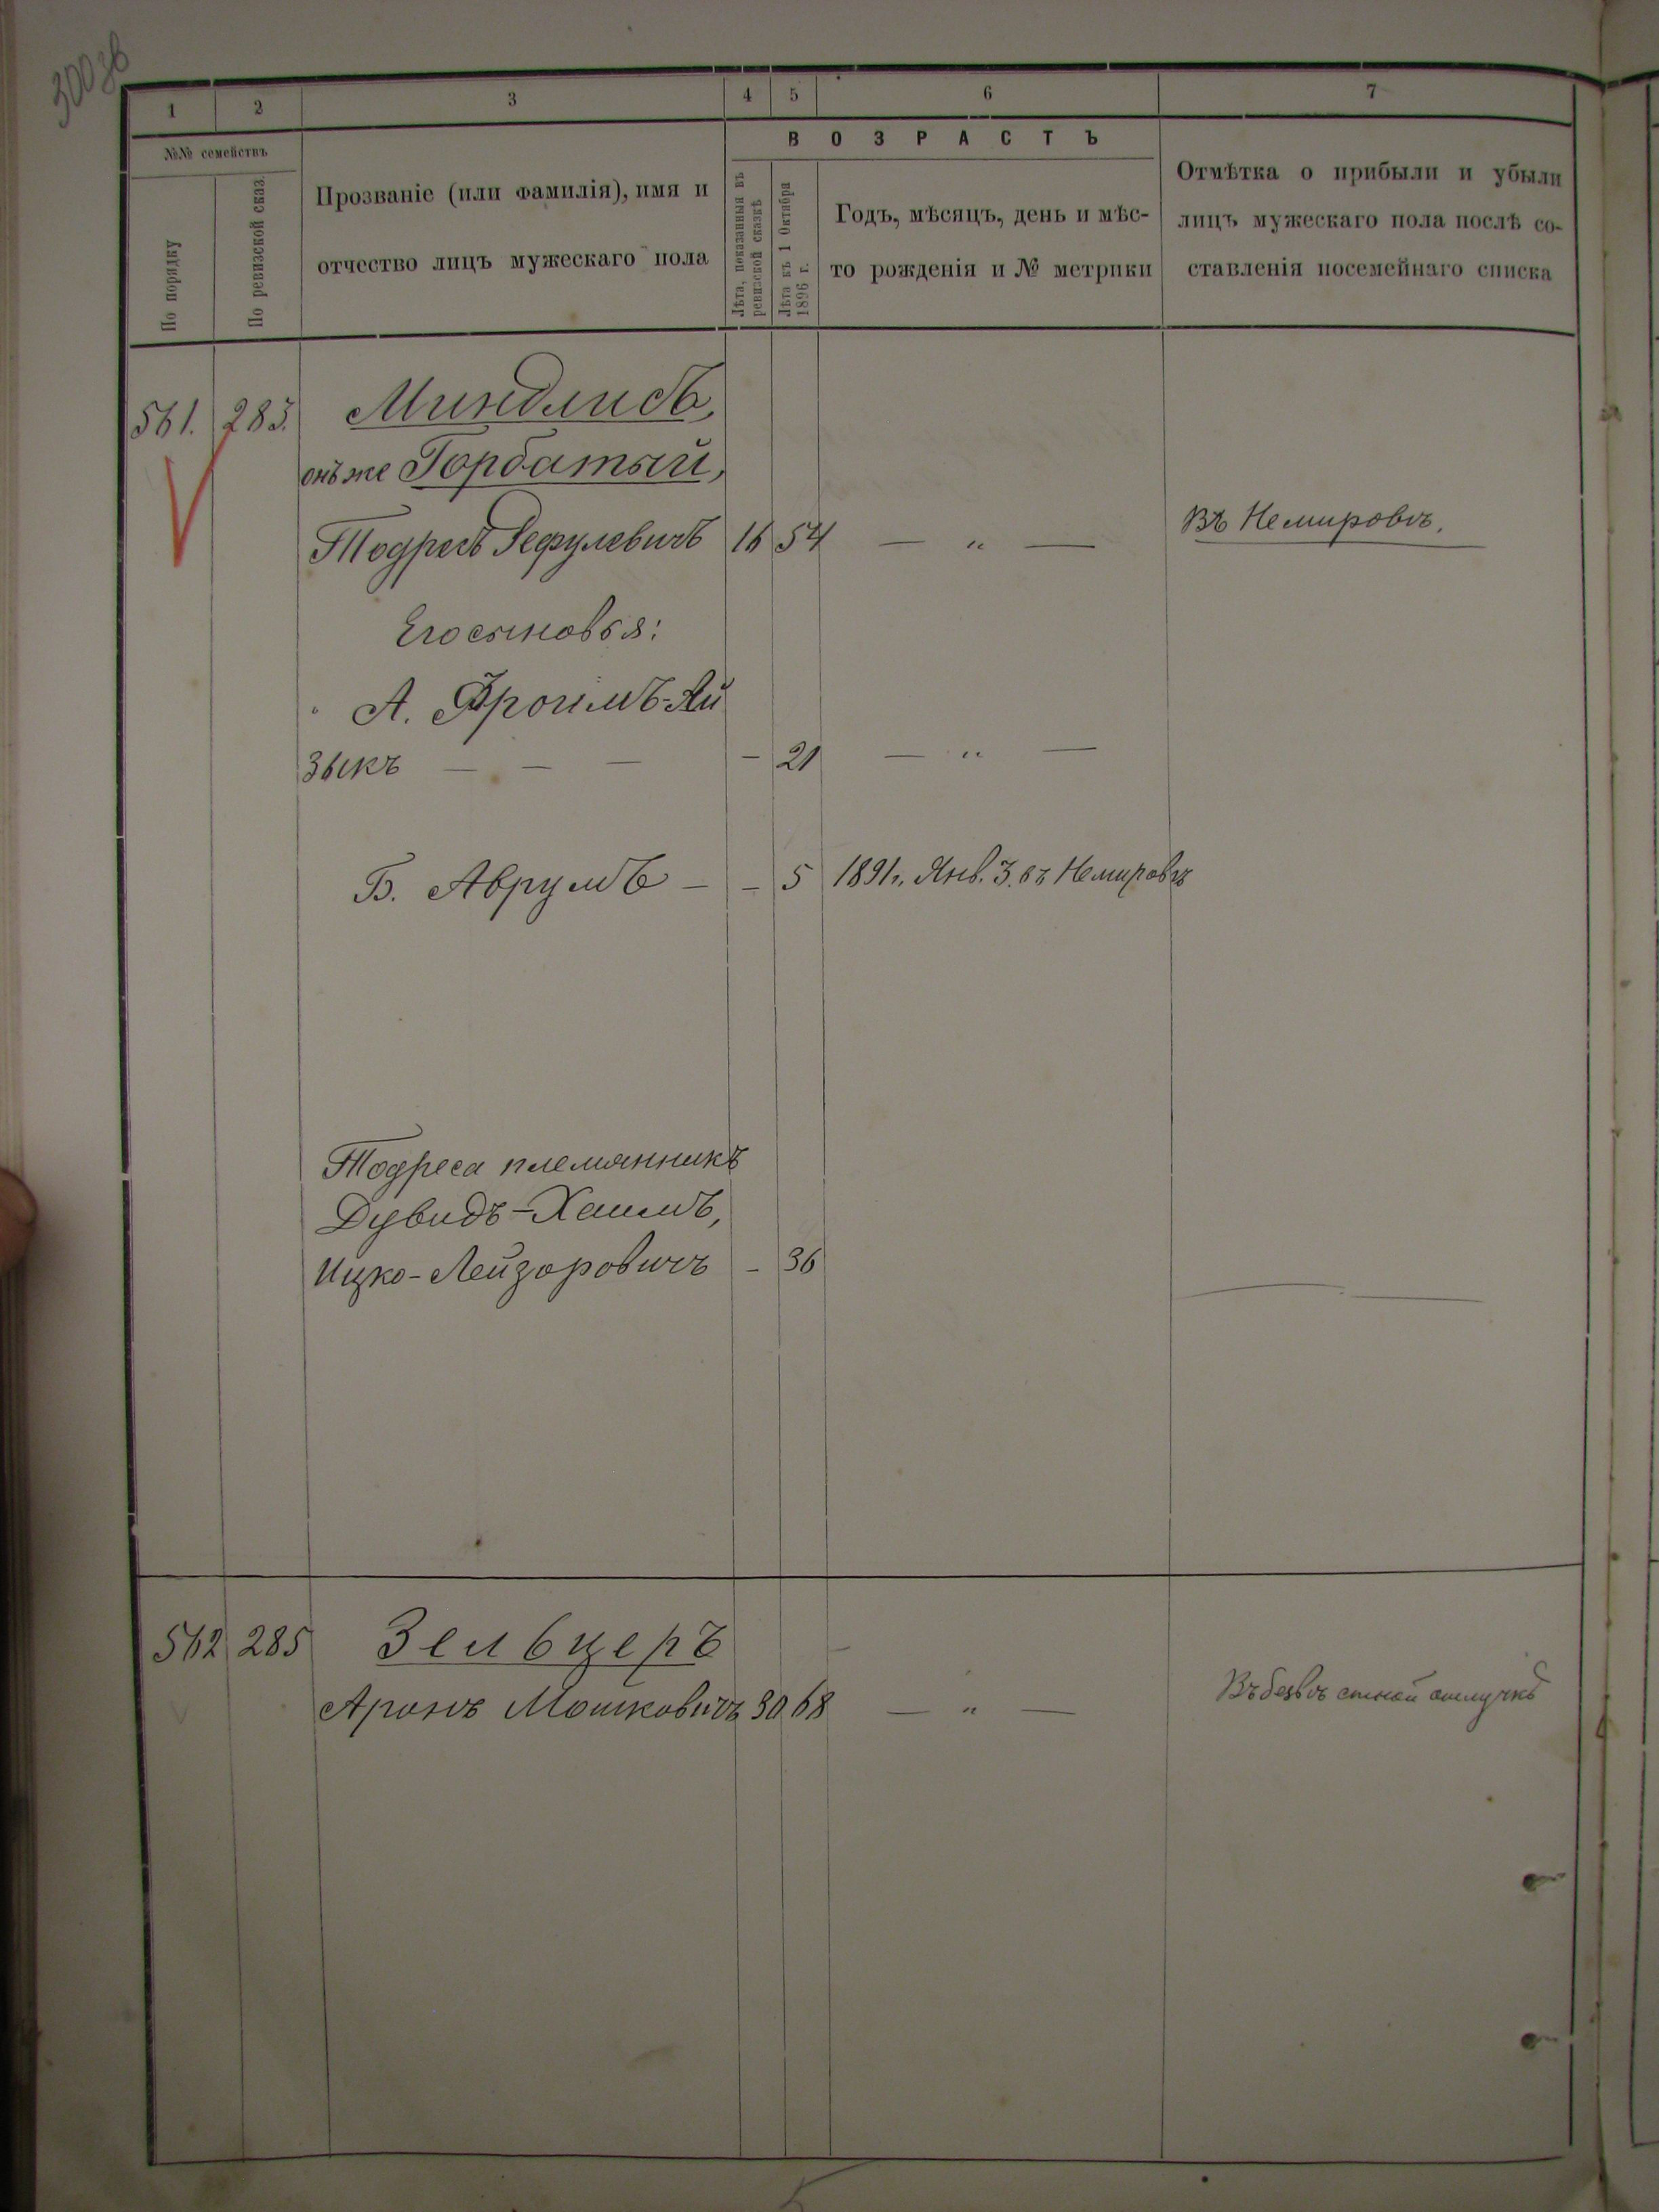 300зв
1 2 3 4 5 6 7
№№ семействъ
По порядку
По ревизской сказ.
Прозваніе (или фамилія), имя и
отчество лицъ мужескаго пола
ВОЗРАСТЪ
Лѣта, показанныя въ
ревизской сказкѣ
Лѣта къ 1 Октября
1896 г.
Годъ, мѣсяцъ, день и мѣс-
то рожденія и № метрики
Отмѣтка о прибыли и убыли
лицъ мужескаго пола послѣ со-
ставленія посемейнаго списка
561. 283. Миндлисъ,
онъ же Горбатый,
Тодресъ Рефулевичъ 16 54 — „ — Въ Немировѣ.
Его сыновья:
А. Фроимъ-Ай
зыкъ — — — - 21 — „ —
Б. Аврумъ - - 5 1891 г. Янв. 3. въ Немировѣ
Тодреса племянникъ
Дувидъ-Хаимъ,
Ицко-Лейзоровичъ - 36
562 285 Зельцеръ
Аронъ Мошковичъ 30 68 — „ — Въ безвѣстной отлучкѣ